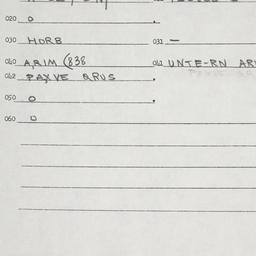 020 0
030 HORB 031 —
060 ARIM (838 061 UNTE-RN AR
062 PAXVE QRUS
050 0
060 0